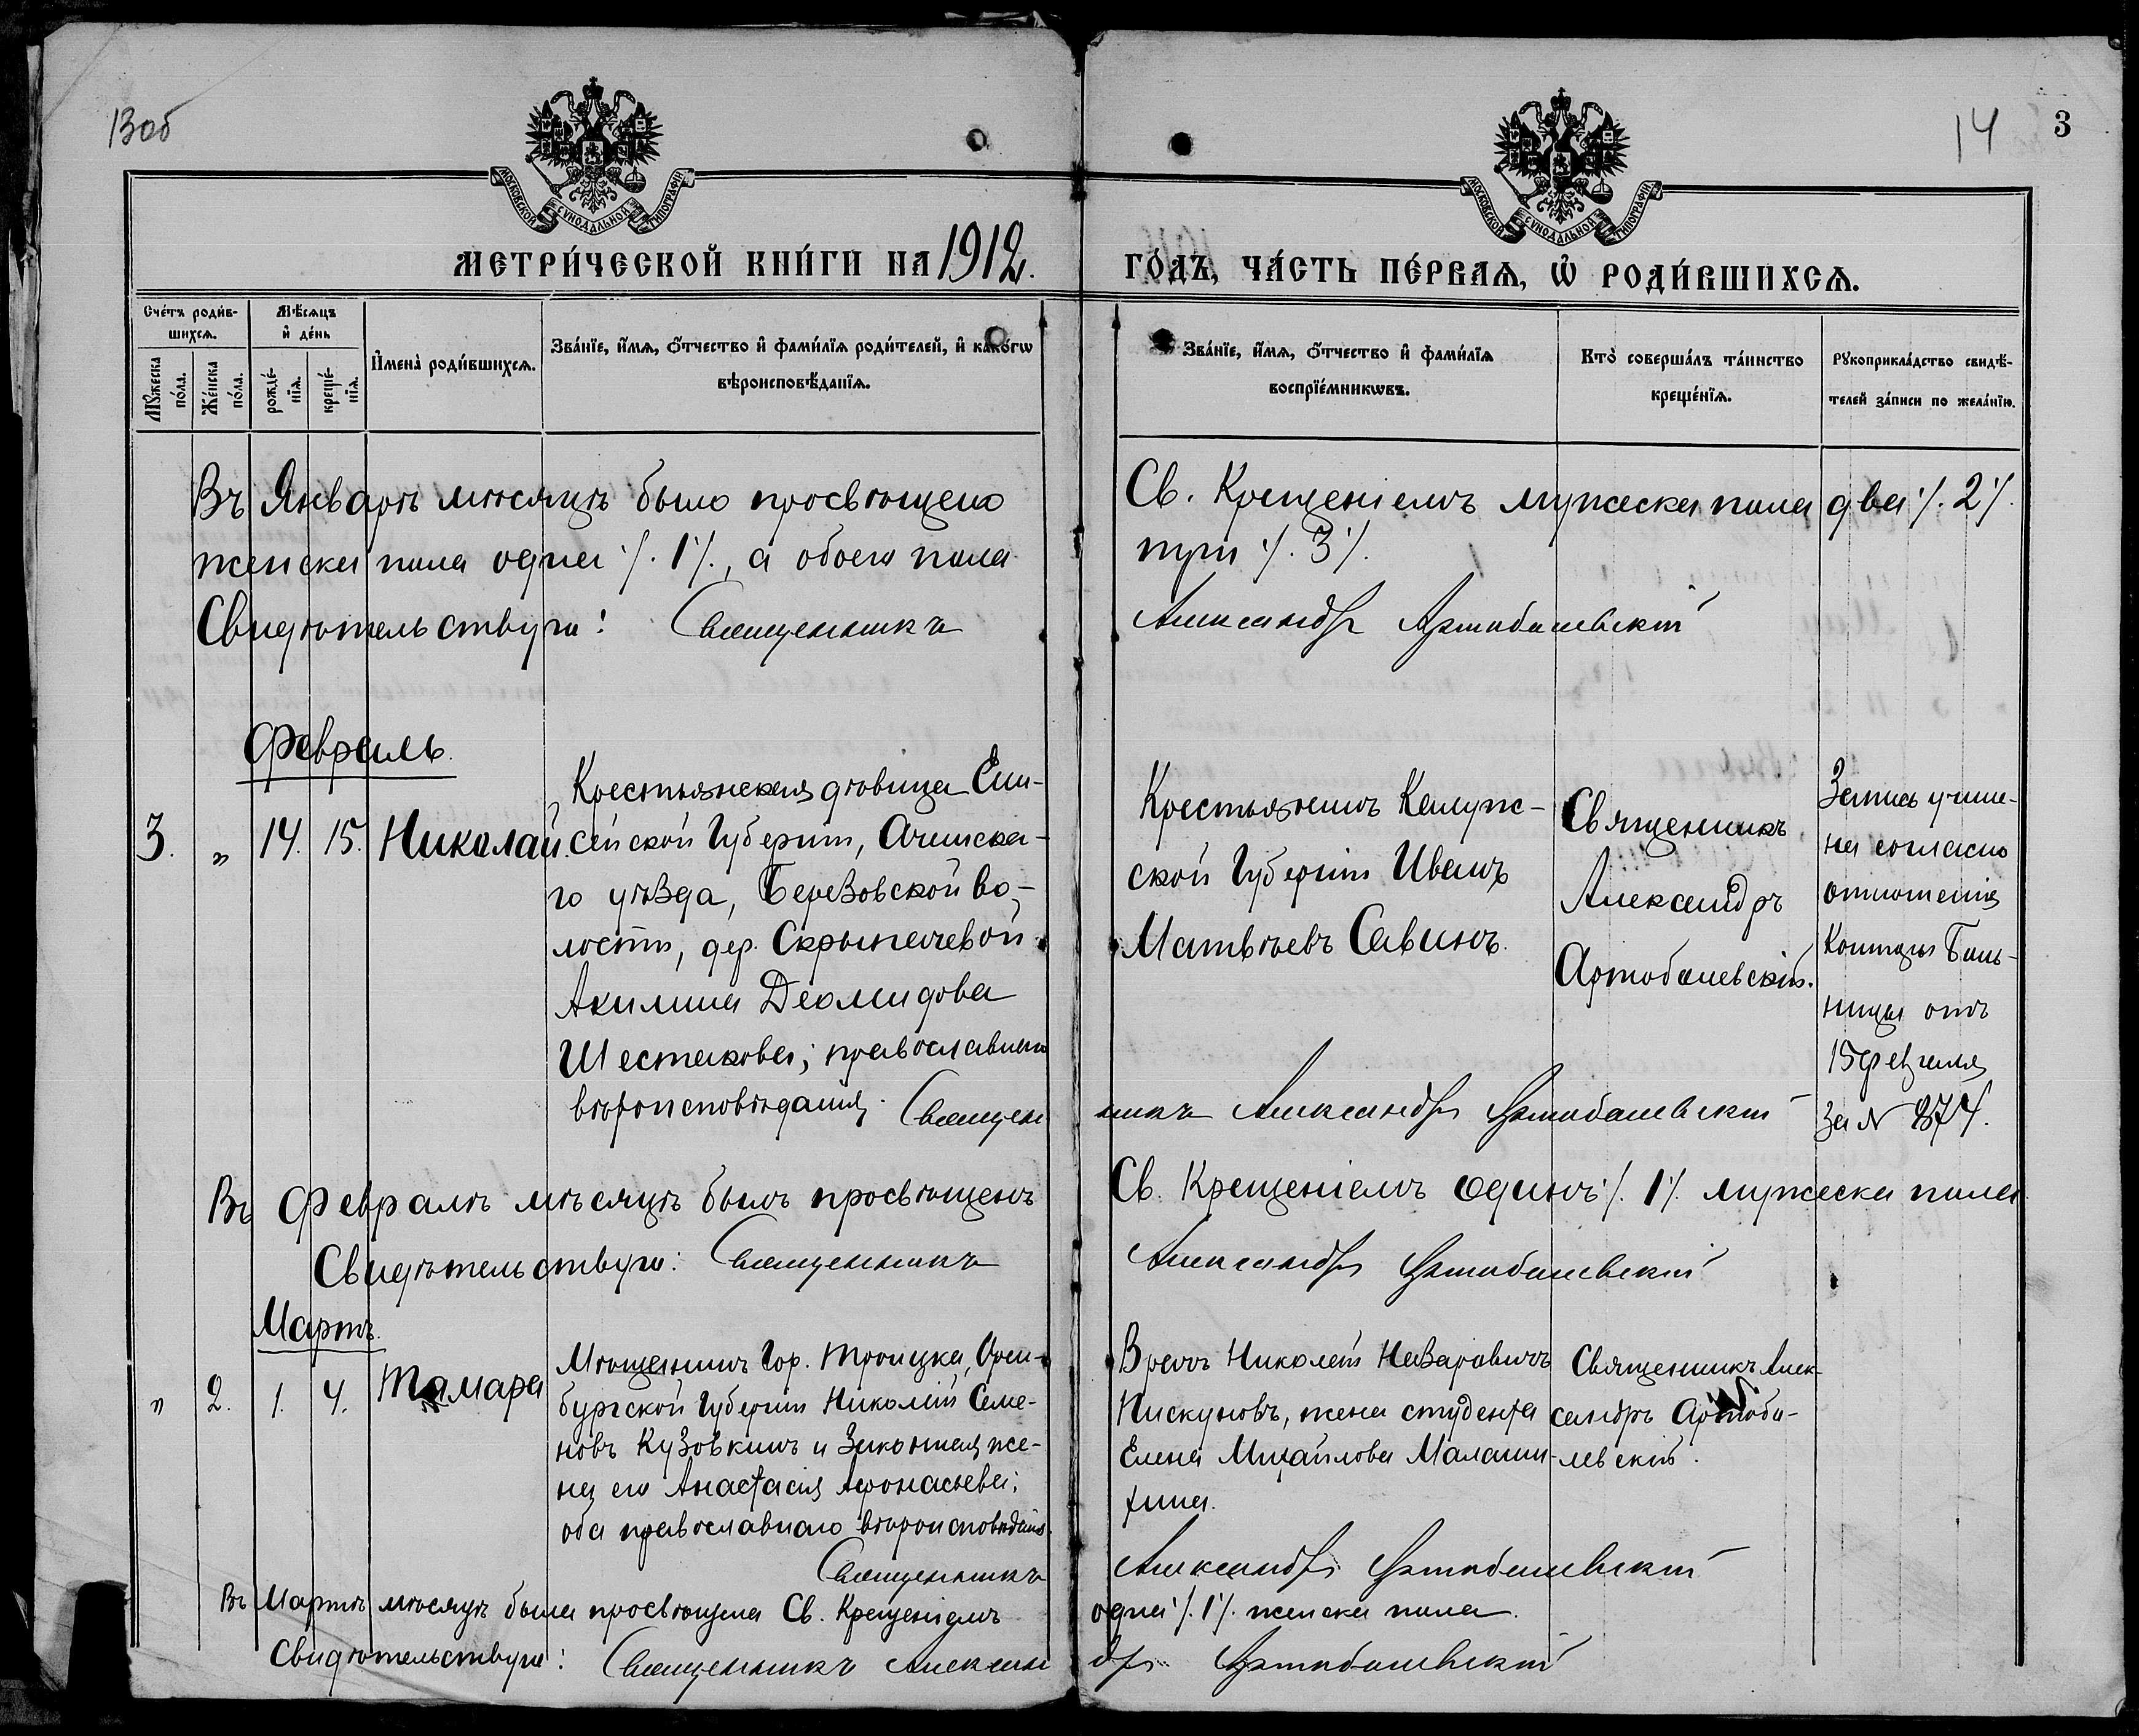 13об
14
3
МОСКОВСКОЙ СѴНОДАЛЬНОЙ ТИПОГРАФІИ
МОСКОВСКОЙ СѴНОДАЛЬНОЙ ТИПОГРАФІИ
МЕТРИ́ЧЕСКОЙ КНИ́ГИ НА 1912.
ГО́ДЪ, ЧА́СТЬ ПЕ́РВАѦ, Ѡ҆ РОДИ́ВШИХСѦ.
Сче́тъ роди́в-
шихсѧ.
Мꙋ́жеска по́ла.
Же́нска по́ла.
Мѣ́сѧцъ
и҆ де́нь
рожде́-
нїѧ.
креще́-
нїѧ.
И҆мена̀ роди́вшихсѧ.
Зва́нїе, и҆́мѧ, ѻ҆́тчество и҆ фами́лїѧ роди́телей, и҆ како́гѡ
вѣроисповѣ́данїѧ.
Зва́нїе, и҆́мѧ, ѻ҆́тчество и҆ фами́лїѧ
воспрїе́мникѡвъ.
Кто̀ соверша́лъ та́инство
креще́нїѧ.
Рꙋкоприкла́дство свидѣ́-
телей за́писи по жела́нїю.
Въ Январѣ мѣсяцѣ было просвѣщено Св. Крещеніемъ мужеска пола два ·/. 2 ·/.
женска пола одна ·/. 1 ·/., а обоего пола три ·/. 3 ·/.
Свидѣтельствую: Священникъ Александръ Артоболевскій
Февраль.
3. „ 14. 15. Николай.
Крестьянская дѣвица Ени-
сейской Губерніи, Ачинска-
го уѣзда, Березовской во-
лости, дер. Скрыпачевой
Акилина Деомидова
Шестакова; православнаго
вѣроисповѣданія.
Крестьянинъ Калуж-
ской Губерніи Иванъ
Матвѣевъ Савинъ.
Священникъ
Александръ
Артоболевскій.
Запись учине-
на согласно
отношенія
Конторы Боль-
ницы отъ
15 февраля
за № 874.
Священникъ Александръ Артоболевскій
Въ Февралѣ мѣсяцѣ былъ просвѣщенъ Св. Крещеніемъ одинъ ·/. 1 ·/. мужеска пола
Свидѣтельствую: Священникъ Александръ Артоболевскій
Мартъ.
„ 2. 1. 4. Тамара
Мѣщанинъ Гор. Троицка, Орен-
бургской Губерніи Николай Семе-
новъ Кузовкинъ и Законная же-
на его Анастасія Афонасьева;
оба православнаго вѣроисповѣданія.
Врачъ Николай Назаровичъ
Пискуновъ, жена студента
Елена Михайлова Малати-
хина.
Священникъ Алек-
сандръ Артобо-
левскій.
Священникъ Александръ Артоболевскій
Въ Мартѣ мѣсяцѣ была просвѣщена Св. Крещеніемъ одна ·/. 1 ·/. женска пола.
Свидѣтельствую: Священникъ Александръ Артоболевскій